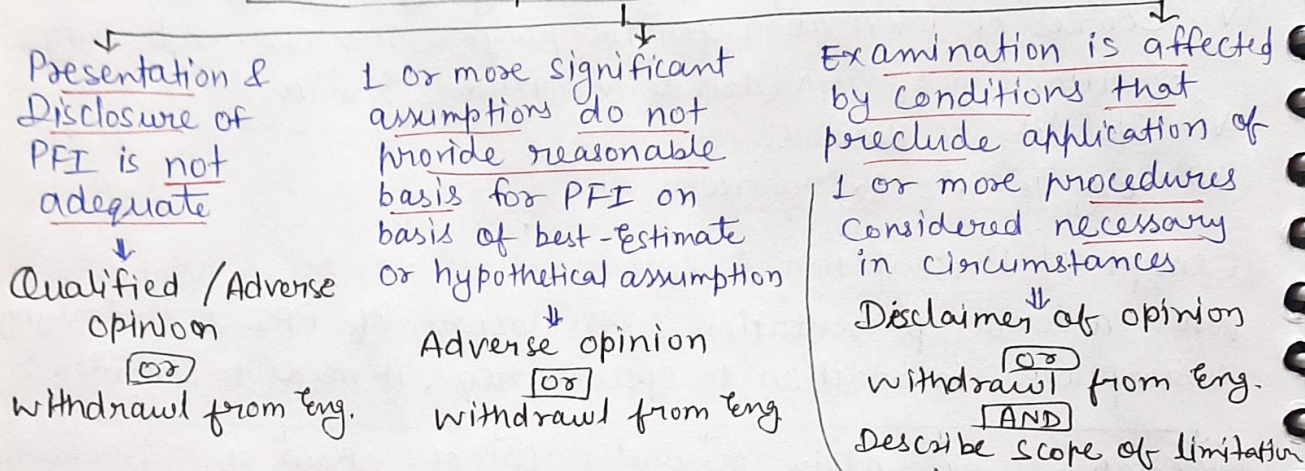 Presentation &
Disclosure of
PFI is not
adequate
Qualified / Adverse
opinion
Or
withdrawl from eng.
1 or more significant
assumptions do not
provide reasonable
basis for PFI on
basis of best-estimate
or hypothetical assumption
Adverse opinion
Or
withdrawl from eng
Examination is affected
by conditions that
preclude application of
1 or more procedures
Considered necessary
in circumstances
Disclaimer of opinion
Or
withdrawl from eng.
AND
Describe scope of limitation